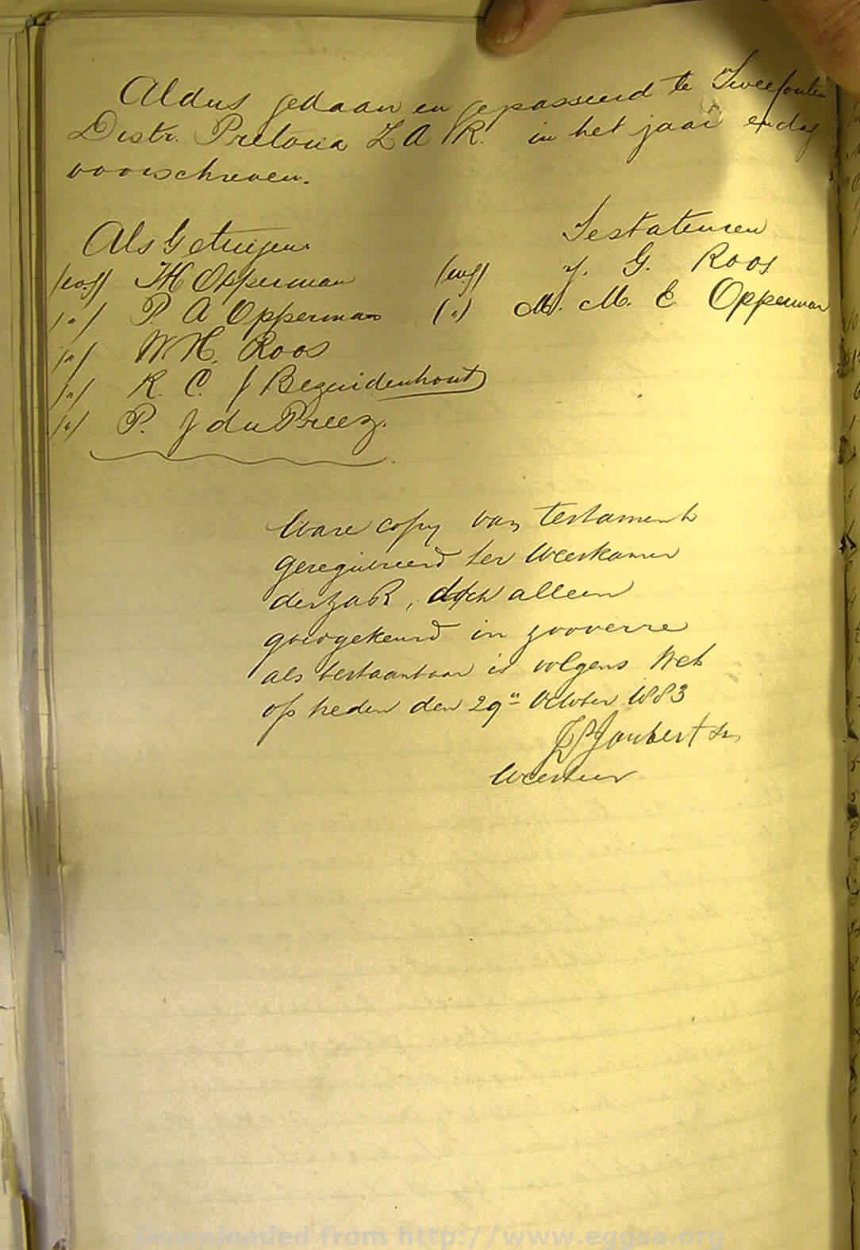 Aldus gedaan en gepasseerd te Tweefontein
Distr. Pretoria Z A R. in het jaar en dag
voorschreven.
Als Getuigen Testateuren
(wg) Opperman (wg) J. G. Roos
(") P A Opperman (") M. M. E Opperman
(") W. H. Roos
(") R. C. J Bezuidenhout
(") P. J du Preez.
Ware copy van testament
geregistreerd ter Weeskamer
der ZAR, doch alleen
goedgekeurd in zooverre
als bestaanbaar is volgens Wet
op heden den 29n October 1883
Joubert Sr
Weesheer
Downloaded from http://www.eggsa.org